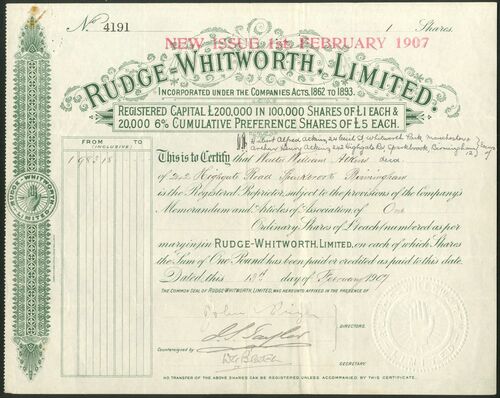 No. 4191 1 Shares.
NEW ISSUE 1st FEBRUARY 1907
RUDGE-WHITWORTH, LIMITED.
INCORPORATED UNDER THE COMPANIES ACTS, 1862 TO 1893.
REGISTERED CAPITAL £200,000 IN 100,000 SHARES OF £1 EACH &
20,000 6% CUMULATIVE PREFERENCE SHARES OF £5 EACH.
FROM (INCLUSIVE) TO
Albert Alfred Atkins Cecil St Whitworth Park Manchester &
Arthur Henry Atkins 242 Highgate Rd Sparkbrook, Birmingham
This is to Certify that William Atkins decd
of 242 Highgate Road Sparkbrook Birmingham
is the Registered Proprietor, subject to the provisions of the Company's
Memorandum and Articles of Association of One
Ordinary Shares of £1 each (numbered as per
margin) in RUDGE-WHITWORTH, LIMITED, on each of which Shares
the Sum of One Pound has been paid or credited as paid to this date.
Dated, this 13th day of February 1907
THE COMMON SEAL OF RUDGE-WHITWORTH, LIMITED, WAS HEREUNTO AFFIXED IN THE PRESENCE OF
DIRECTORS.
Countersigned by
SECRETARY
NO TRANSFER OF THE ABOVE SHARES CAN BE REGISTERED UNLESS ACCOMPANIED BY THIS CERTIFICATE.
RUDGE WHITWORTH
LIMITED